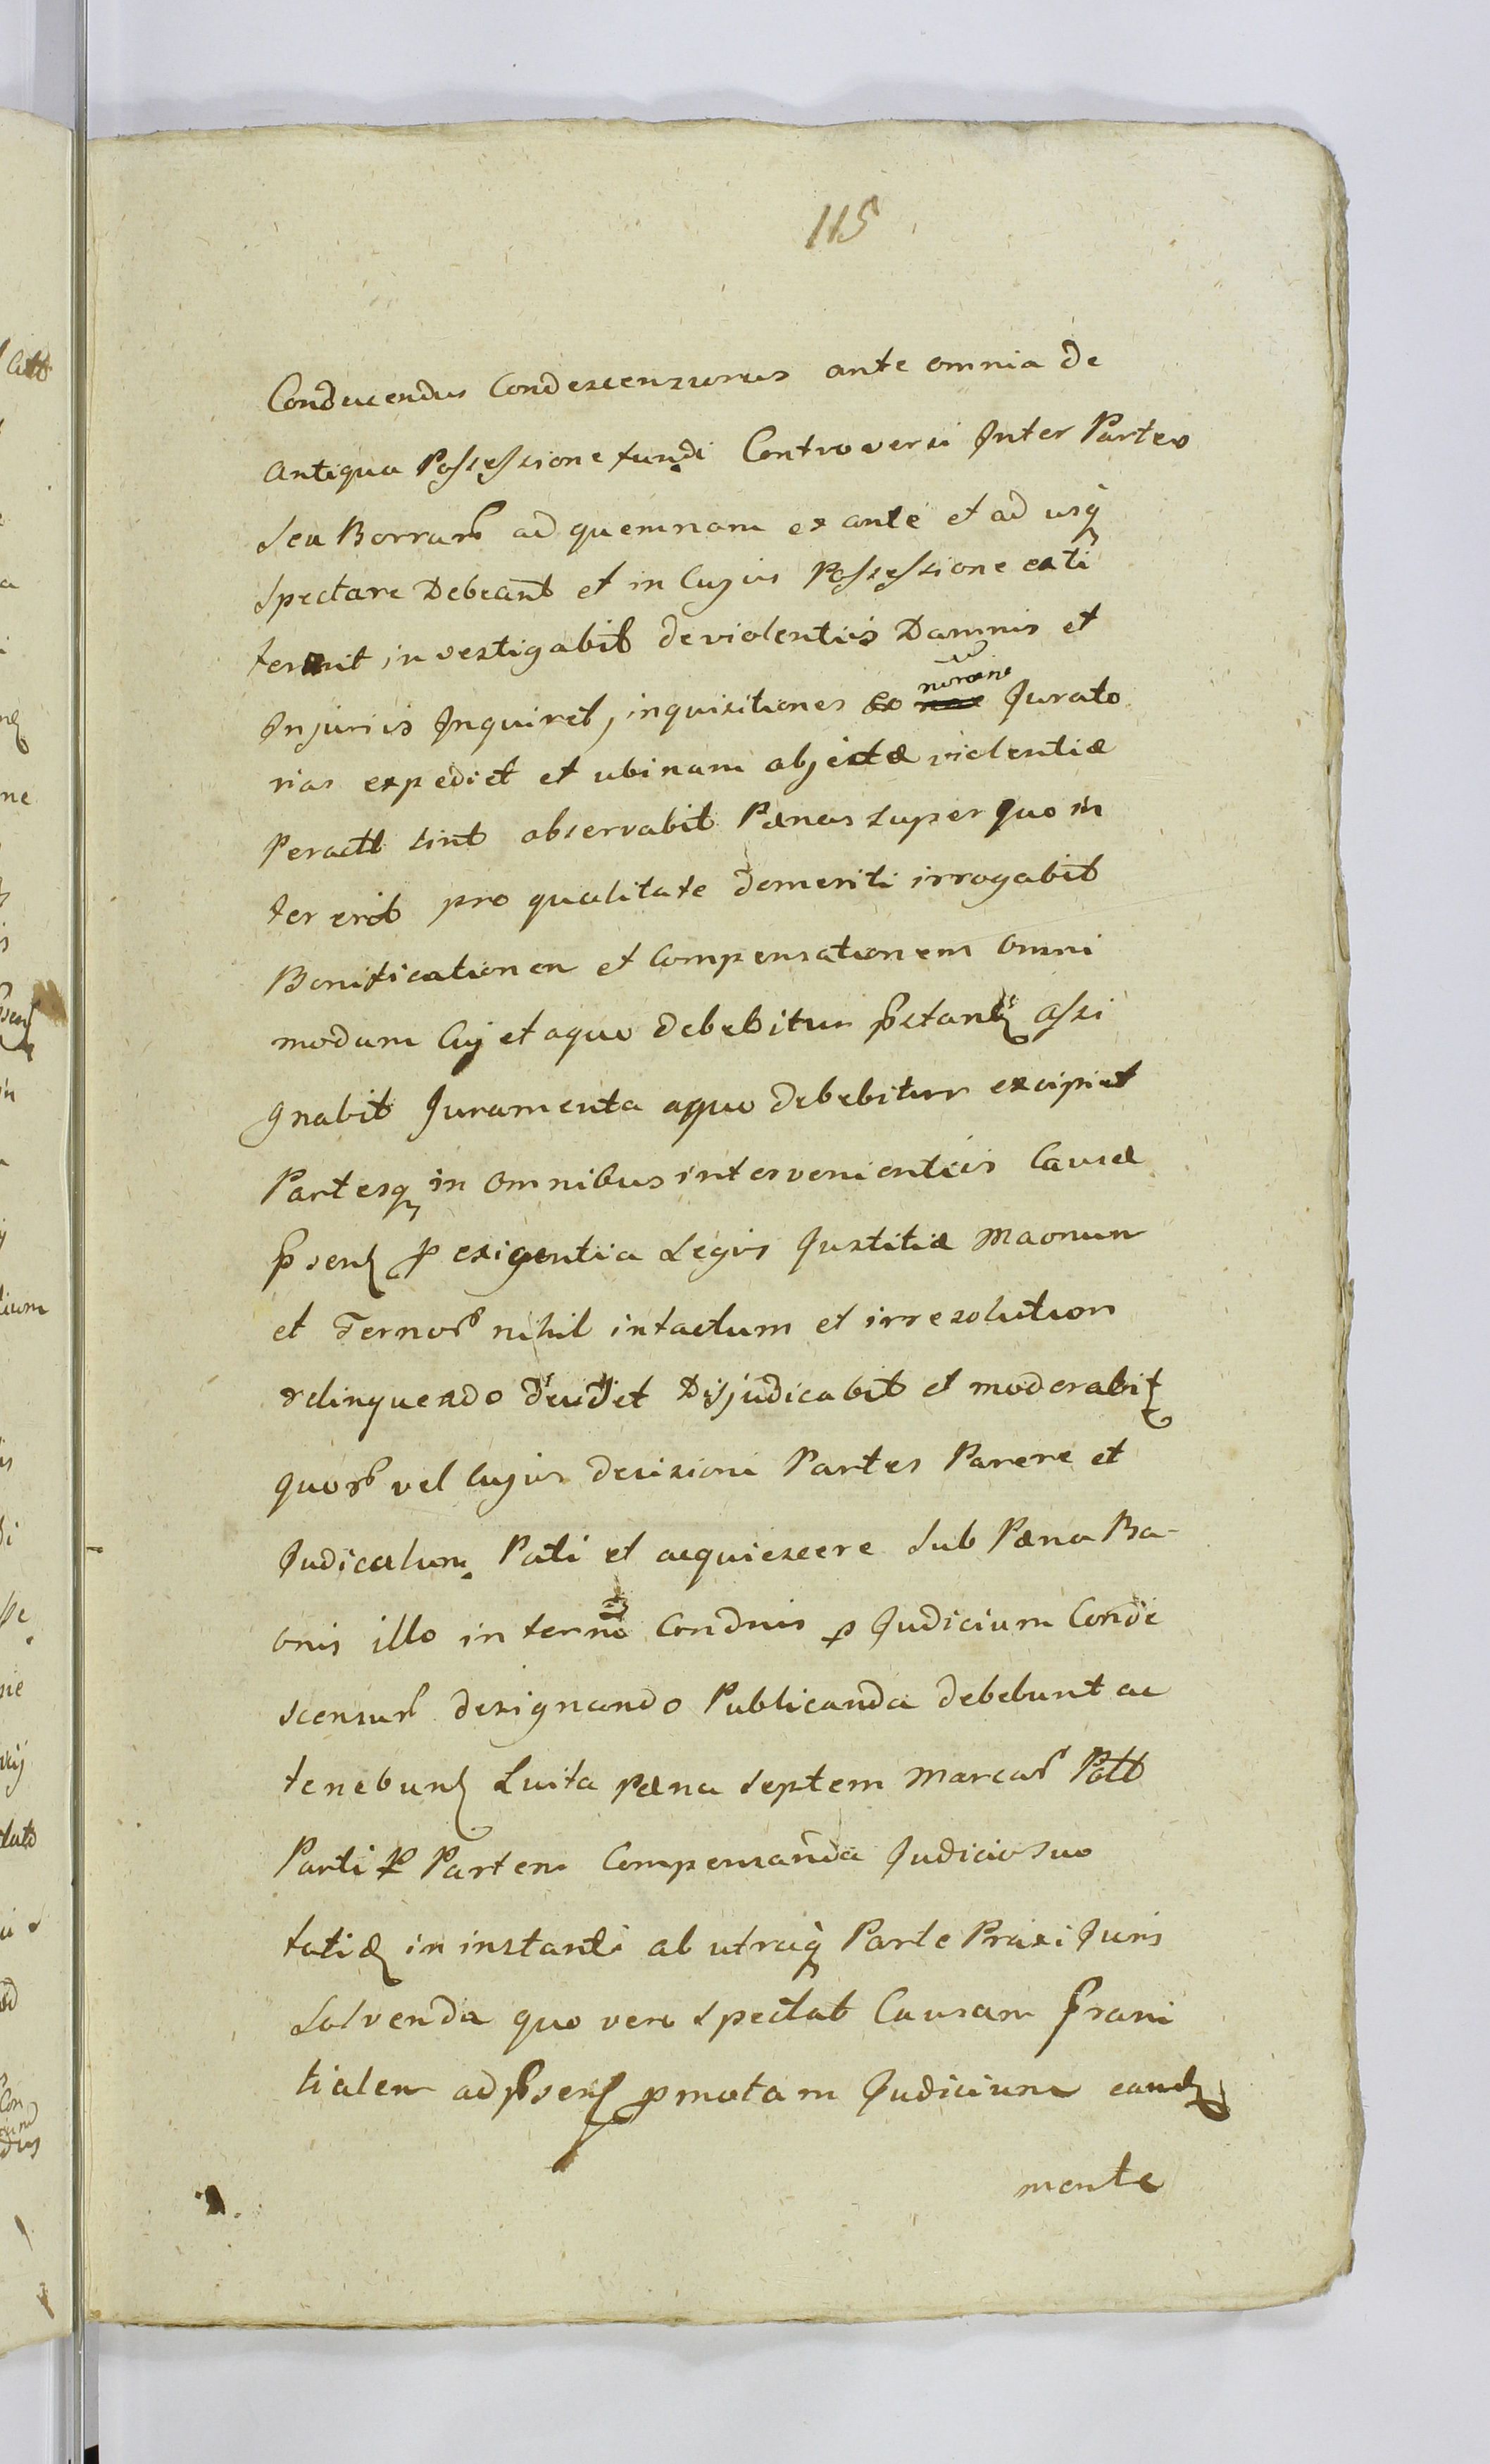 115
Conducendus Condescensurus ante omnia de
antiqua Possessione fundi Controversi Inter Partes
seu Borrar ad quemnam ex ante et ad usq
spectare Debeant et in Cujus Possessione exti
terint investigabit de violentiis Damnis et
Injuriis Inquiret, inquisitiones Jurato
rias expediet et ubinam objectæ violentiæ
peractæ sint observabit Pænas super quo in
ter erit pro qualitate demeriti irrogabit
Bonificationem et Compensationem omni
modam Cuj et a quo debebitur pstand assi
gnabit Juramenta a quo debebitur excipiet
Partesq in omnibus intervenientiis Causæ
psen p exigentia Legis Justitiæ
et nihil intactum et irresolutum
relinquendo Disjudicabit et moderabit
quor vel Cujus decisioni Partes Parere et
Judicatum Pati et acquiescere sub Pæna Ba-
onis illo in termo Condnis p Judicium Conde
scensur designando Publicanda debebunt ac
tenebunt Luita pæna septem marcar Pott
Parti p Partem Compensanda Judicio suo
totiq in instanti ab utraq Parte Praxi Juris
solvenda quo vero spectat Causam prani
tialem ad psens pmotam Judicium eand
mente